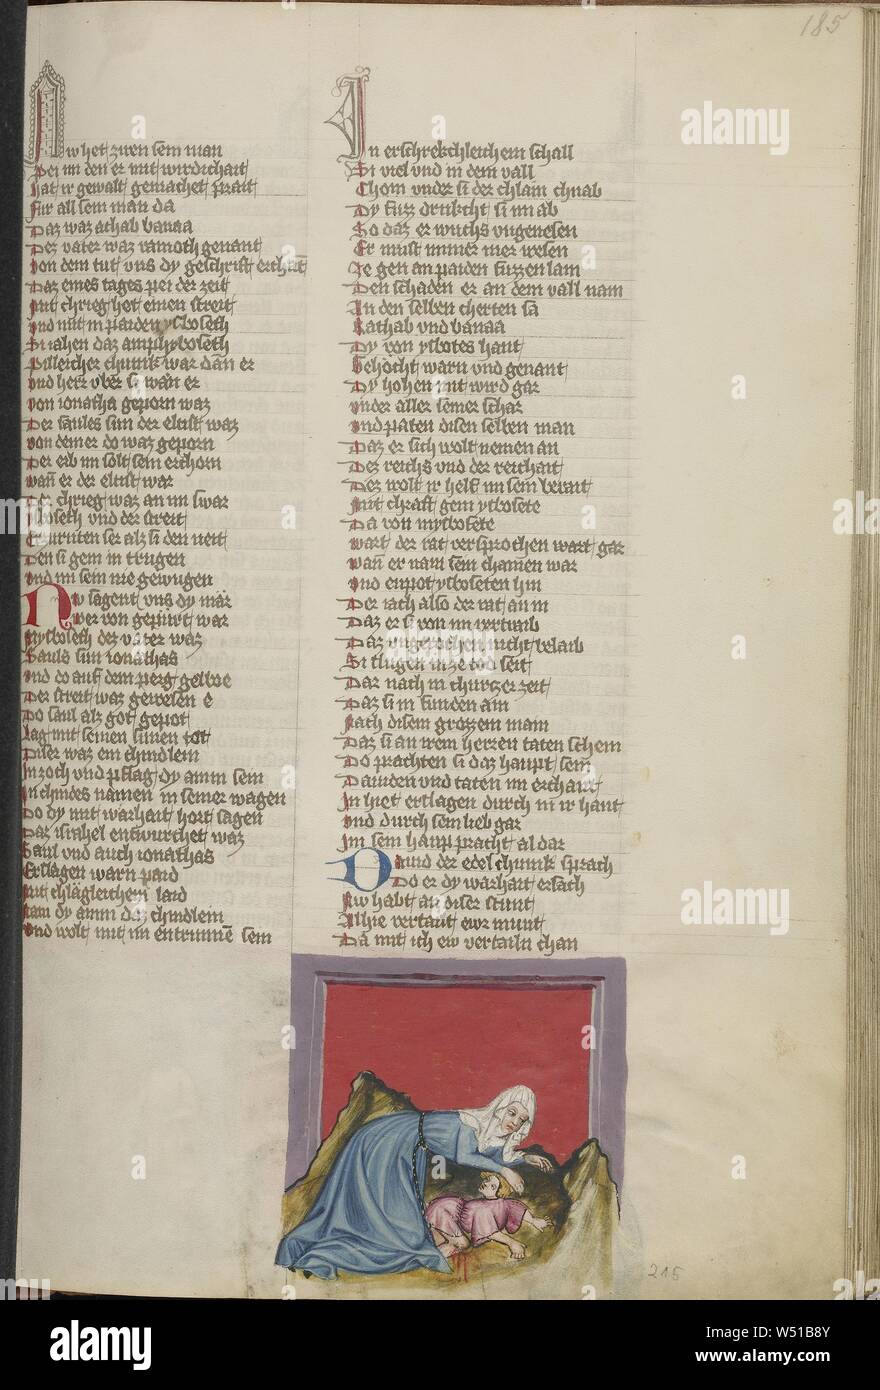 185
Nw het zwen sein man
Pei im den er mit wirdichait
Hat ir gewalt gemachet prait
Fur all sein man da
Daz waz achab banaa
Der vater waz ramoth genant
Von dem tut vns dy geschrift erchant
Daz eines tages per der zeit
Mit chrieg het einen streit
Vnd mit in paiden ysboseth
Si iahen daz amphyboseth
Pilleicher chunik war dan er
Vnd herr vber si wan er
Von ionatha geporn waz
Der saules sun der eltist waz
Von dem er do waz geporn
Der erb im solt sein erchorn
Wan er der eltist war
Der chrieg waz an im swar
Isboseth vnd der streit
Er muten ser alz si den neit
Den si gein im trugen
Vnd im sein nie gewugen
Nw sagent vns dy mär
Wer von gepürt war
Myfboseth der vater waz
Sauls sun ionathas
Vnd do auf dem perg gelboe
Der streit waz gewesen e
Do saul alz got gepot
Lag mit seinen sunen tot
Diser waz ein chindlein
In zoch vnd pflag dy amm sein
In chindes namen in seiner wagen
Do dy mit warhait hort sagen
Daz israhel entwurchet waz
Saul vnd auch ionathas
Erslagen warn paid
Mit chlägleichem laid
Nam dy amm daz chindlein
Vnd wolt mit im entrinnen sein
In erschrekchleichem schall
Si viel vnd in dem vall
Chom vnder si der chlain chnab
Dy fuzz drukcht si im ab
So daz er wuchs vngenesen
Er must immer mer wesen
Ie gen an paiden fuzzen lam
Den schaden er an dem vall nam
In den selben cherten sa
Rathab vnd banaa
Dy von ysbotes hant
Gehöcht warn vnd genant
Dy hohen mit wird gar
Vnder aller seiner schar
Vnd paten disen selben man
Daz er sich wolt nemen an
Dez reichs vnd der reichait
Dez wolt ir helf im sein berait
Mit chraft gein ysbosete
Da von myfbosete
Wart der rat versprochen wart gar
Wan er nam sein chainen war
Vnd enpot ysboseten hin
Der rach also der rat an in
Daz er si von im vertraib
Daz vngerochen nicht belaib
Si slugen in ze tod seit
Dar nach in churczer zeit
Daz si in funden ain
Nach disem grozzem main
Daz si an irem herren taten schein
Do prachten si daz haupt sein
Dauiden vnd taten im erchant
Si hiet erslagen durch in ir hant
Vnd durch sein lieb gar
Im sein haupp pracht al dar
Dauid der edel chunik sprach
Do er dy warhait ersach
Ir habt an diser stunt
Alhie vertailt ewr munt
Da mit ich ew vertailn chan
215
alamy
Image ID: W51B8Y
www.alamy.com